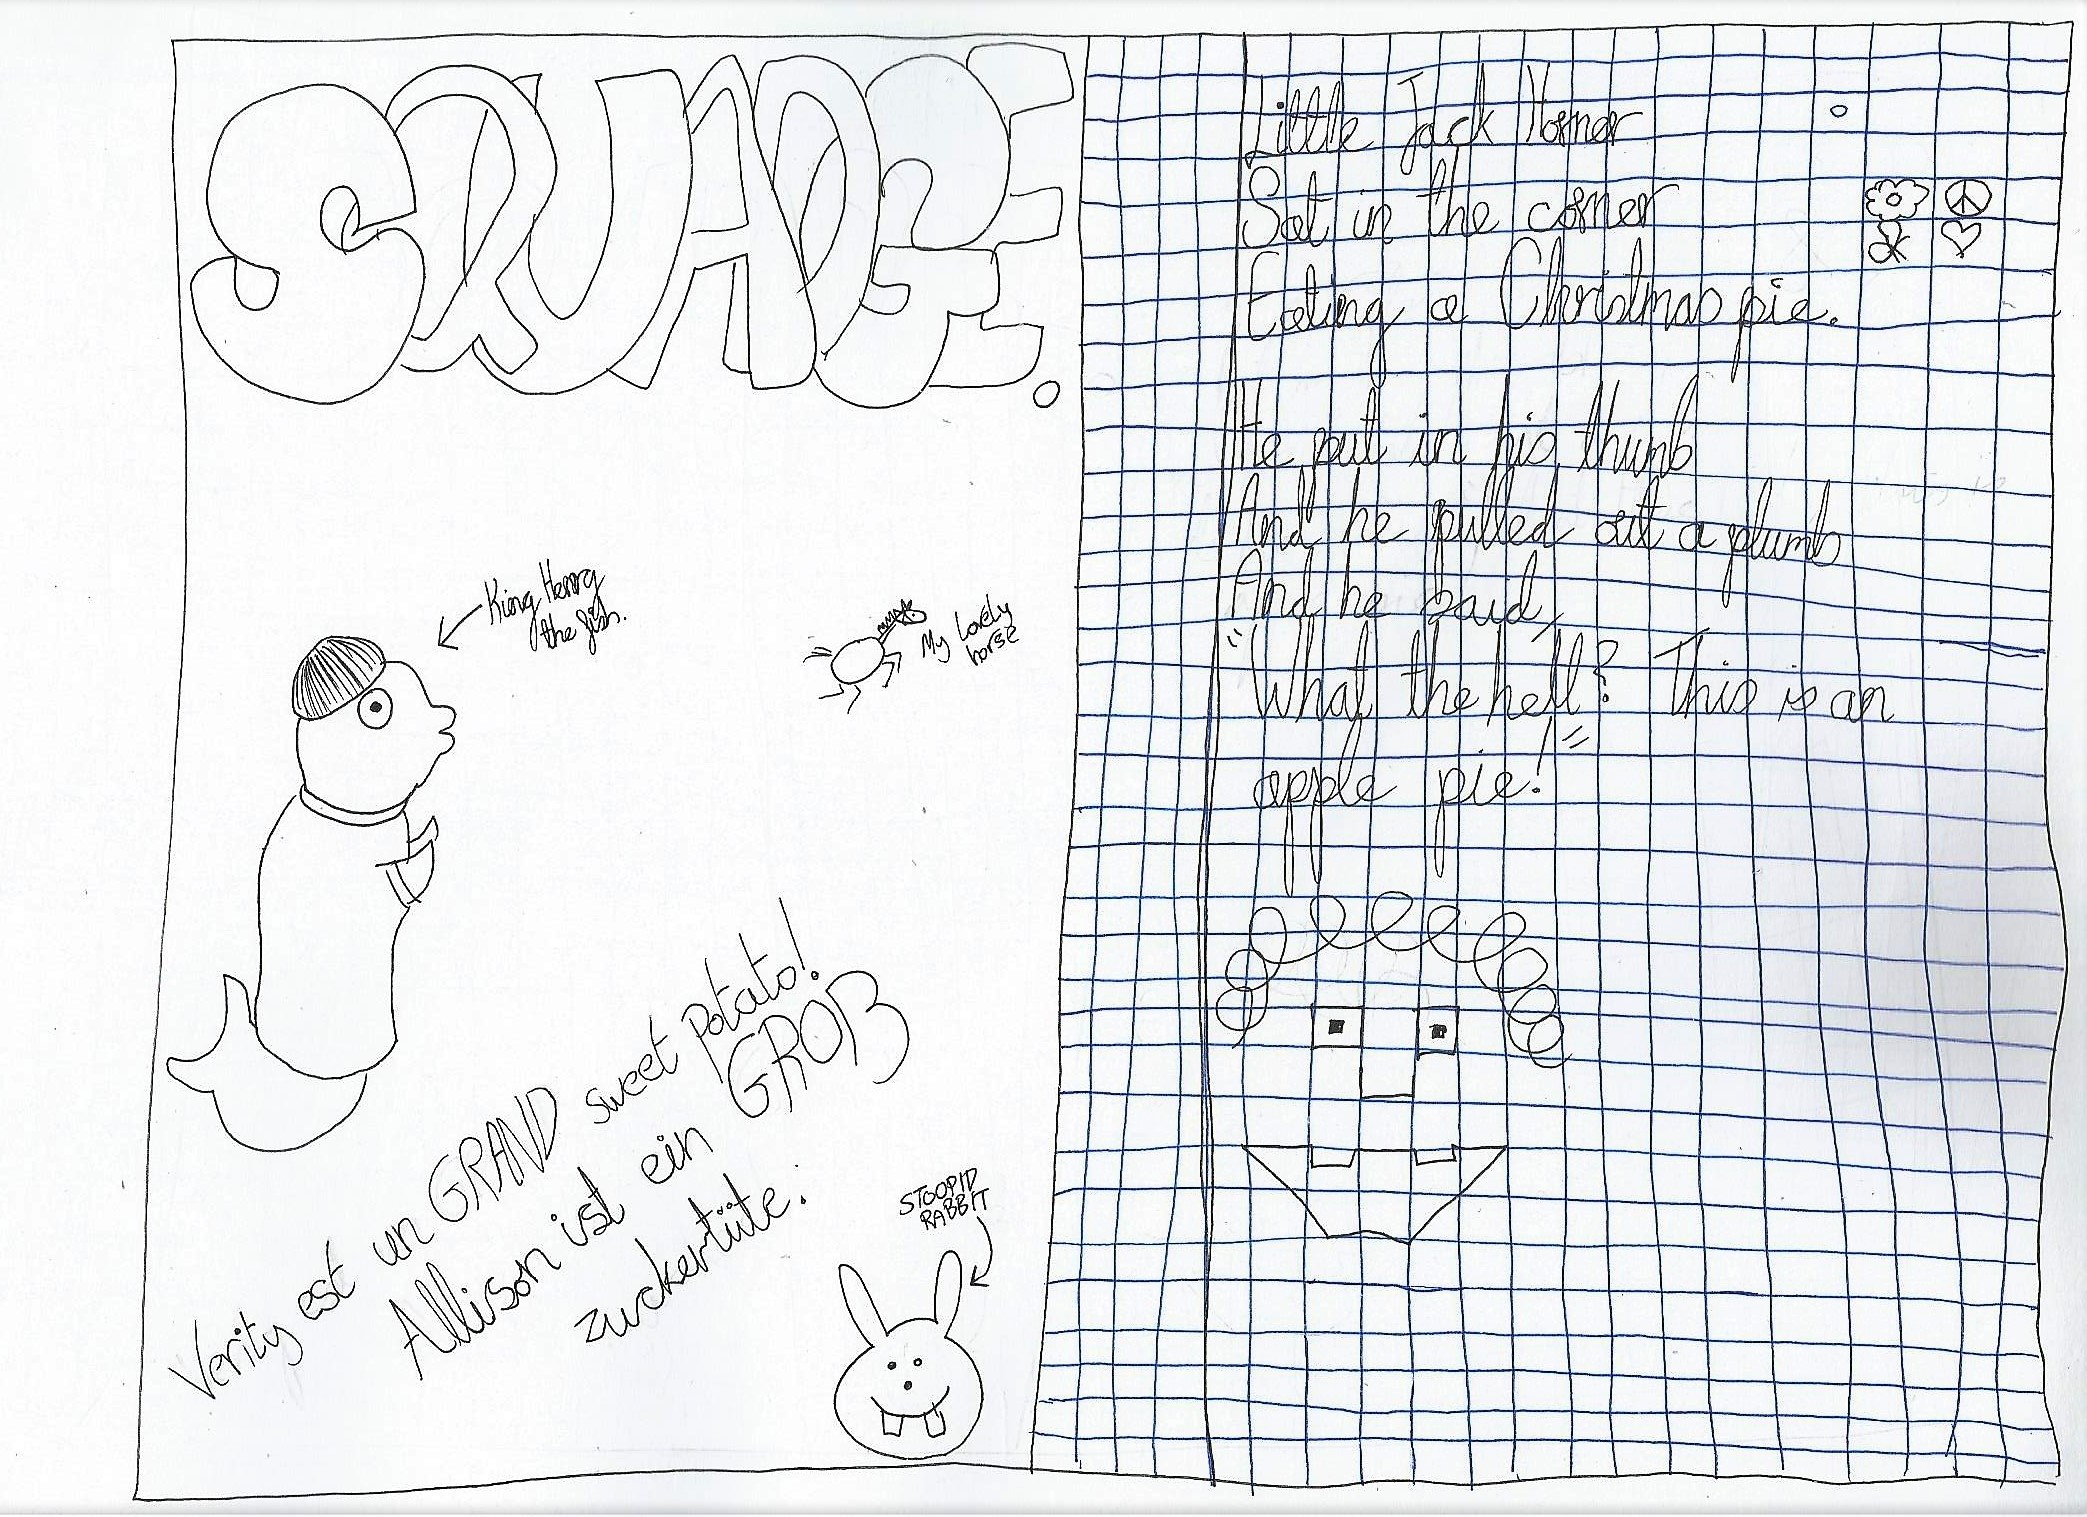 SQUADGE.
King Henry
the fish.
My Lovely
horse
Verity est un GRAND sweet potato!
Allison ist ein GROß
zuckertüte.
STOOPID
RABBIT
Little Jack Horner
Sat in the corner
Eating a Christmas pie.
He put in his thumb
And he pulled out a plumb
And he said,
"What the hell? This is an
apple pie!"